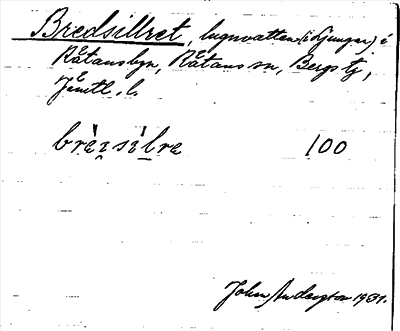 Bredsillret, lugnvatten (i Ljungan) i
Råtansbyn, Råtans sn, Bergs tg,
Jämtl. l.
brèisìlre 100
John Andersson 1931.